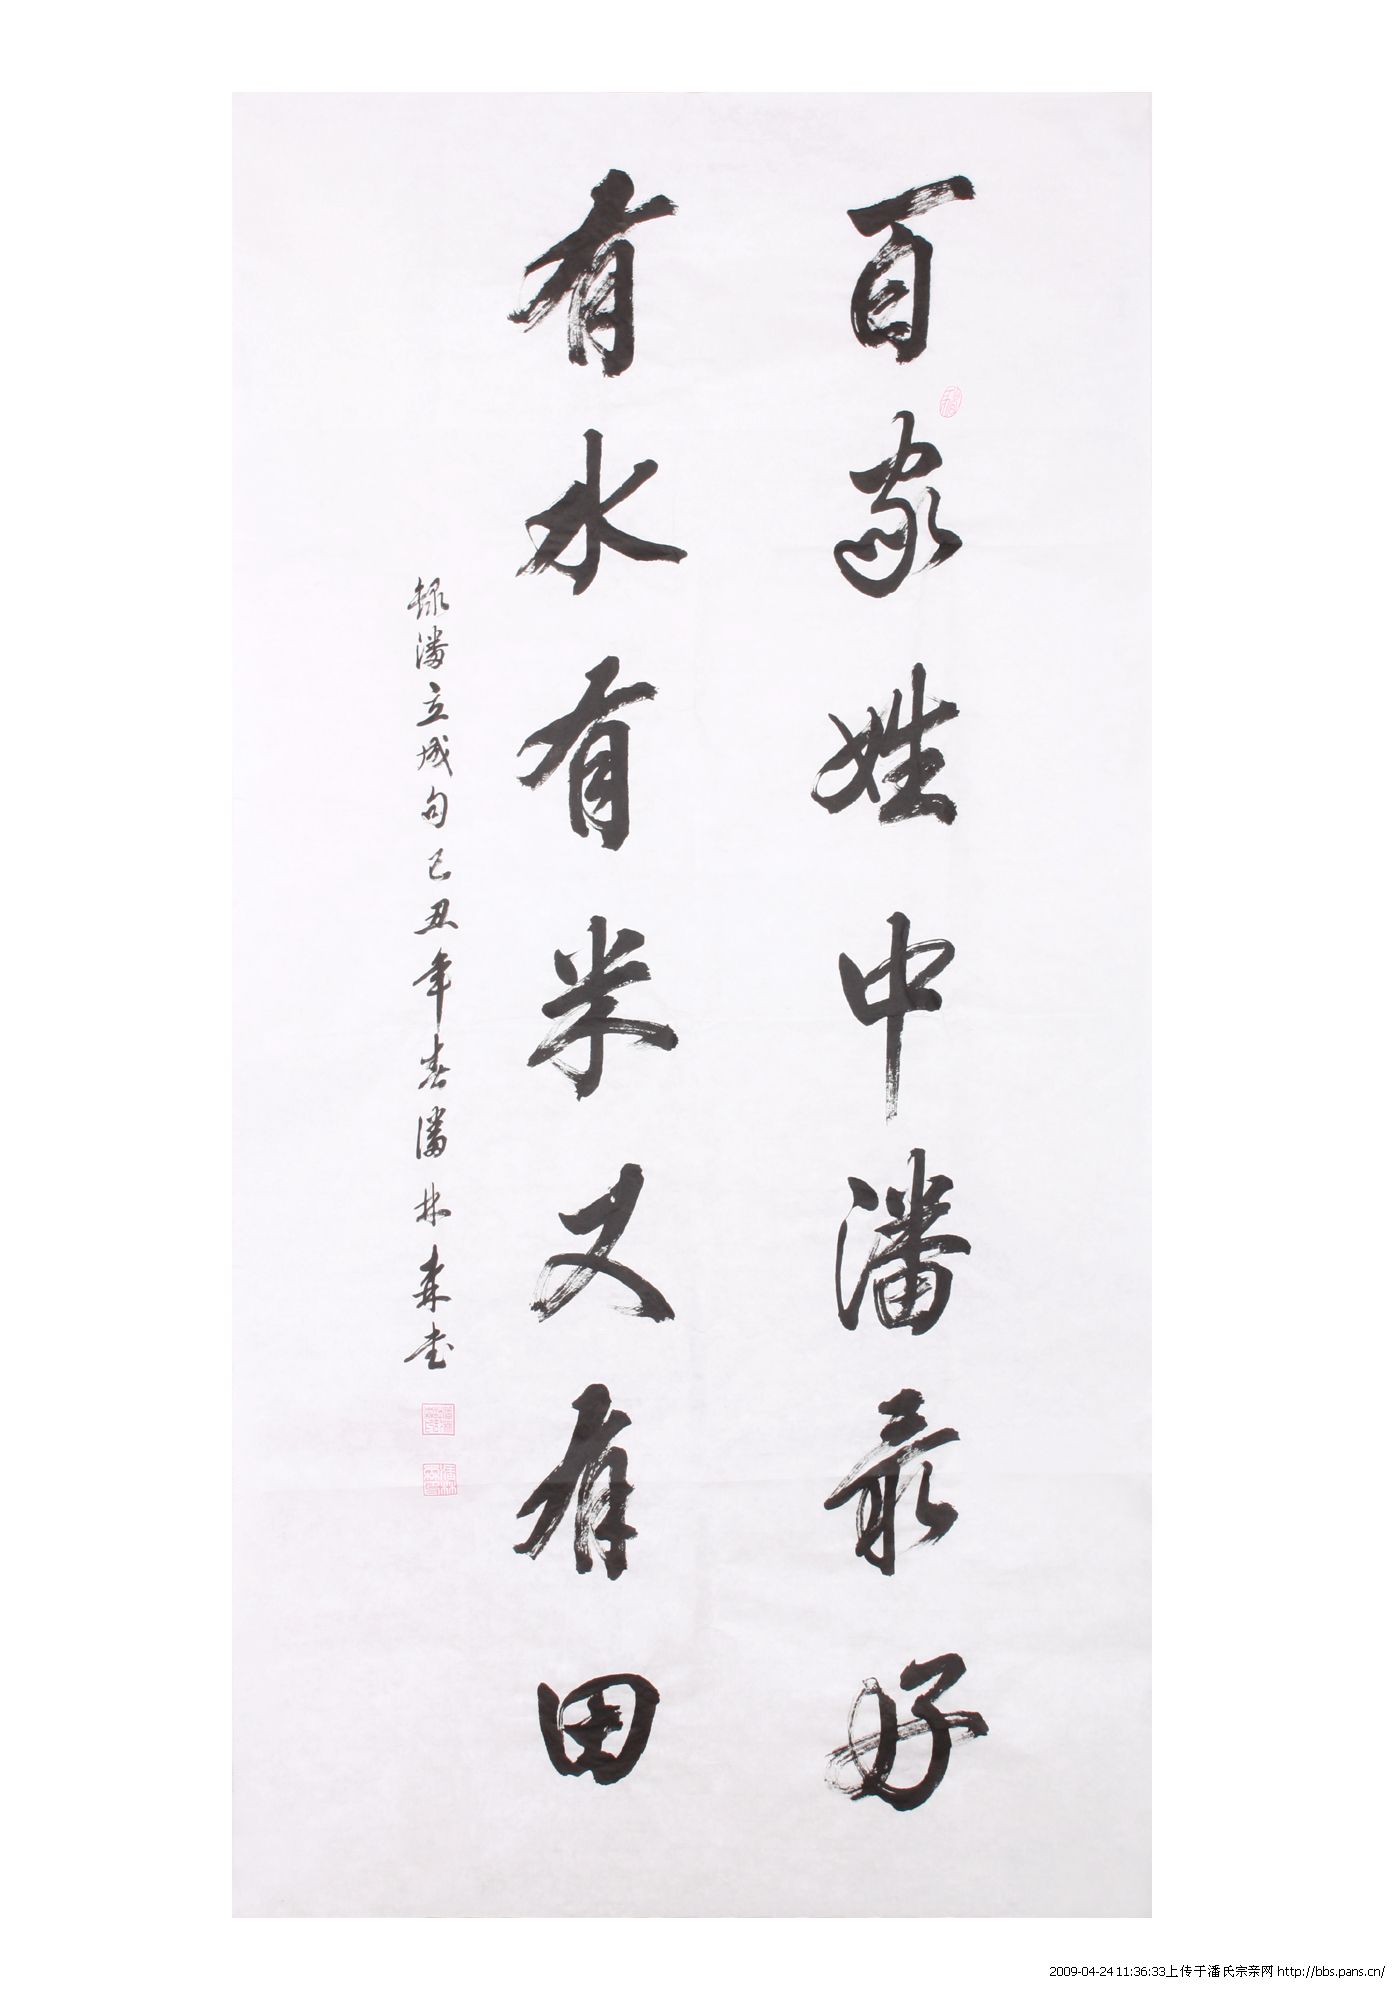 百家姓中潘最好
有水有米又有田
录潘立成句己丑年春潘林森书
2009-04-24 11:36:33上传于潘氏宗亲网 http://bbs.pans.cn/